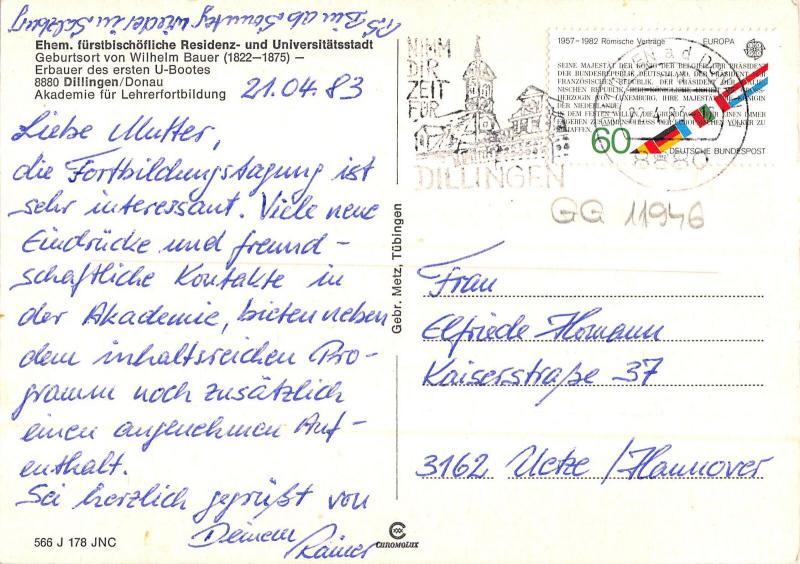 PS Bin ab Sonntag wieder in Salzburg
Ehem. fürstbischöfliche Residenz- und Universitätsstadt
Geburtsort von Wilhelm Bauer (1822–1875) –
Erbauer des ersten U-Bootes
8880 Dillingen/Donau
Akademie für Lehrerfortbildung
21.04.83
Liebe Mutter,
die Fortbildungstagung ist
sehr interessant. Viele neue
Eindrücke und freund-
schaftliche Kontakte in
der Akademie, bieten neben
dem inhaltsreichen Pro-
gramm noch zusätzlich
einen angenehmen Auf-
enthalt.
Sei herzlich gegrüßt von
Deinem
Rainer
566 J 178 JNC
CHROMOLUX
Gebr. Metz, Tübingen
NIMM
DIR
ZEIT
FÜR
DILLINGEN
8880
1957–1982 Römische Verträge EUROPA
SEINE MAJESTÄT DER KÖNIG DER BELGIER, DER PRÄSIDENT
DER BUNDESREPUBLIK DEUTSCHLAND, DER PRÄSIDENT DER
FRANZÖSISCHEN REPUBLIK, DER PRÄSIDENT DER ITALIE-
NISCHEN REPUBLIK, IHRE KÖNIGLICHE HOHEIT DIE GROSS-
HERZOGIN VON LUXEMBURG, IHRE MAJESTÄT DIE KÖNIGIN
DER NIEDERLANDE,
IN DEM FESTEN WILLEN, DIE GRUNDLAGEN FÜR EINEN IMMER
ENGEREN ZUSAMMENSCHLUSS DER EUROPÄISCHEN VÖLKER ZU
SCHAFFEN,
60
DEUTSCHE BUNDESPOST
GG 11946
Frau
Elfriede Homann
Kaiserstraße 37
3162 Uetze/Hannover